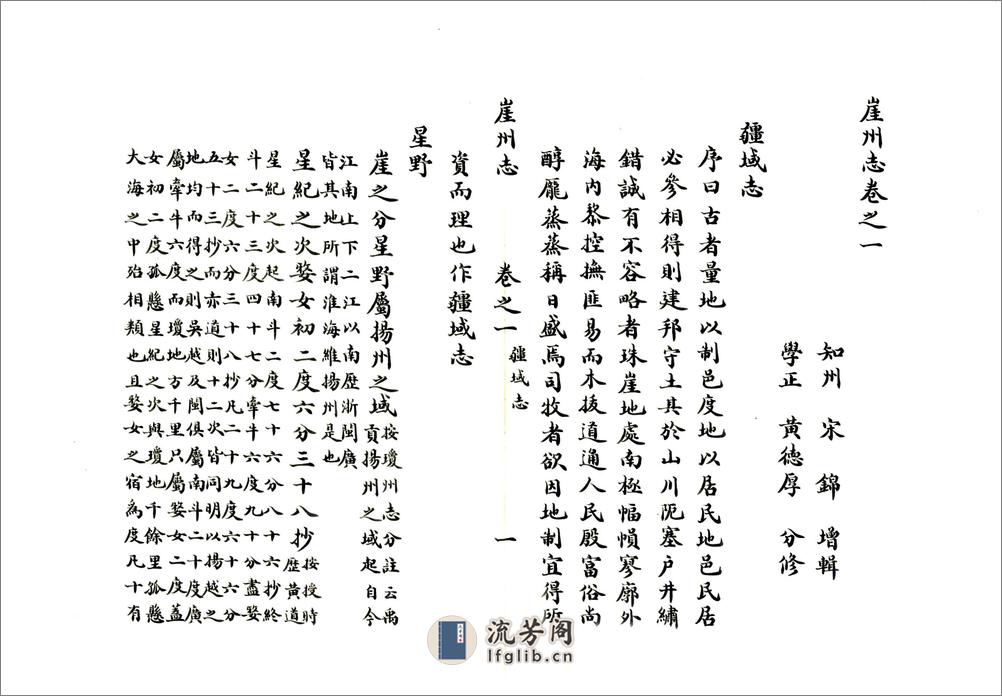 崖州志卷之一
知州 宋 錦 增輯
學正 黃德厚 分修
疆域志
序曰古者量地以制邑度地以居民地邑民居
必參相得則建邦守土具於山川阨塞户井繡
錯誠有不容略者珠崖地處南極幅幀寥廓外
海内黎控撫匪易而木拔道通人民殷富俗尚
醇龎蒸蒸稱日盛焉司牧者欲因地制宜得所
崖州志 卷之一 疆域志 一
資而理也作疆域志
星野
崖之分星野屬揚州之域
按瓊州志分註云禹
貢揚州之域起自今
江南上下二江以南歷浙閩廣
皆其地所謂淮海維揚州是也
星紀之次婺女初二度六分三十八抄
按授時
歷黃道
星紀之次起南斗二度七十六分八十六抄終
斗二十三度四十七分牽牛六度九十分盡婺
女二度六分三十八抄凡二十九度六十六分
五十三抄而亦道則十二次皆同明以揚越之
地均而得之則吳越及閩俱屬南斗二十度廣
屬牽牛六度而瓊地方千里只屬婺女二度蓋
女初二度孤懸星紀之次與瓊地千餘里孤懸
大海之中殆相類也且婺女之宿為度凡十有
流芳阁
lfglib.cn